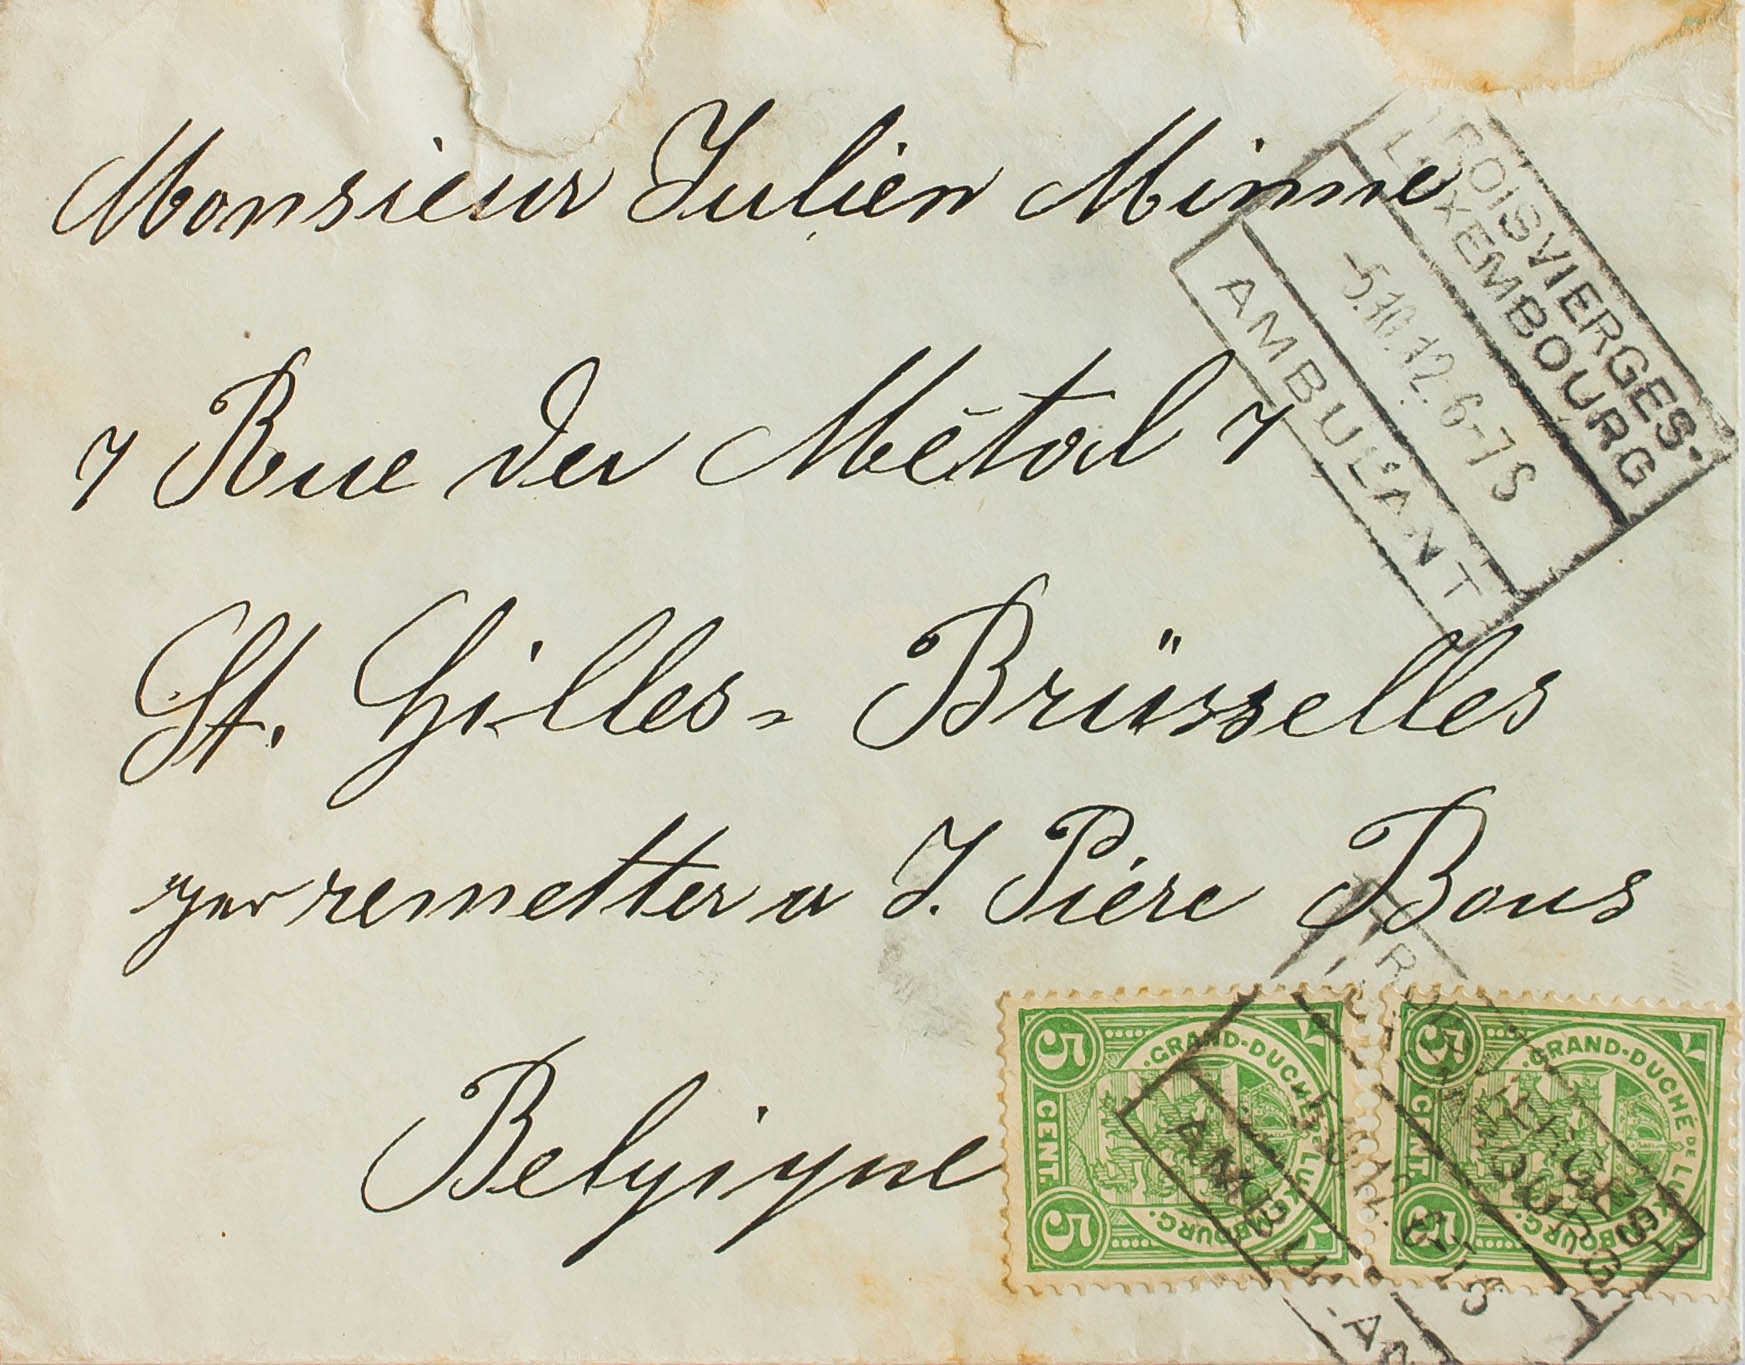 Monsieur Julien Minne
7 Rue du Métal 7
St. Gilles - Brüsselles
remetter a J. Piére Bous
Belgique
TROISVIERGES-
LUXEMBOURG
-5.10.12. 6-7 S
AMBULANT
5 CENT. 5
GRAND-DUCHÉ DE LUXEMBOURG.
5 CENT. 5
GRAND-DUCHÉ DE LUXEMBOURG.
AMBULAN